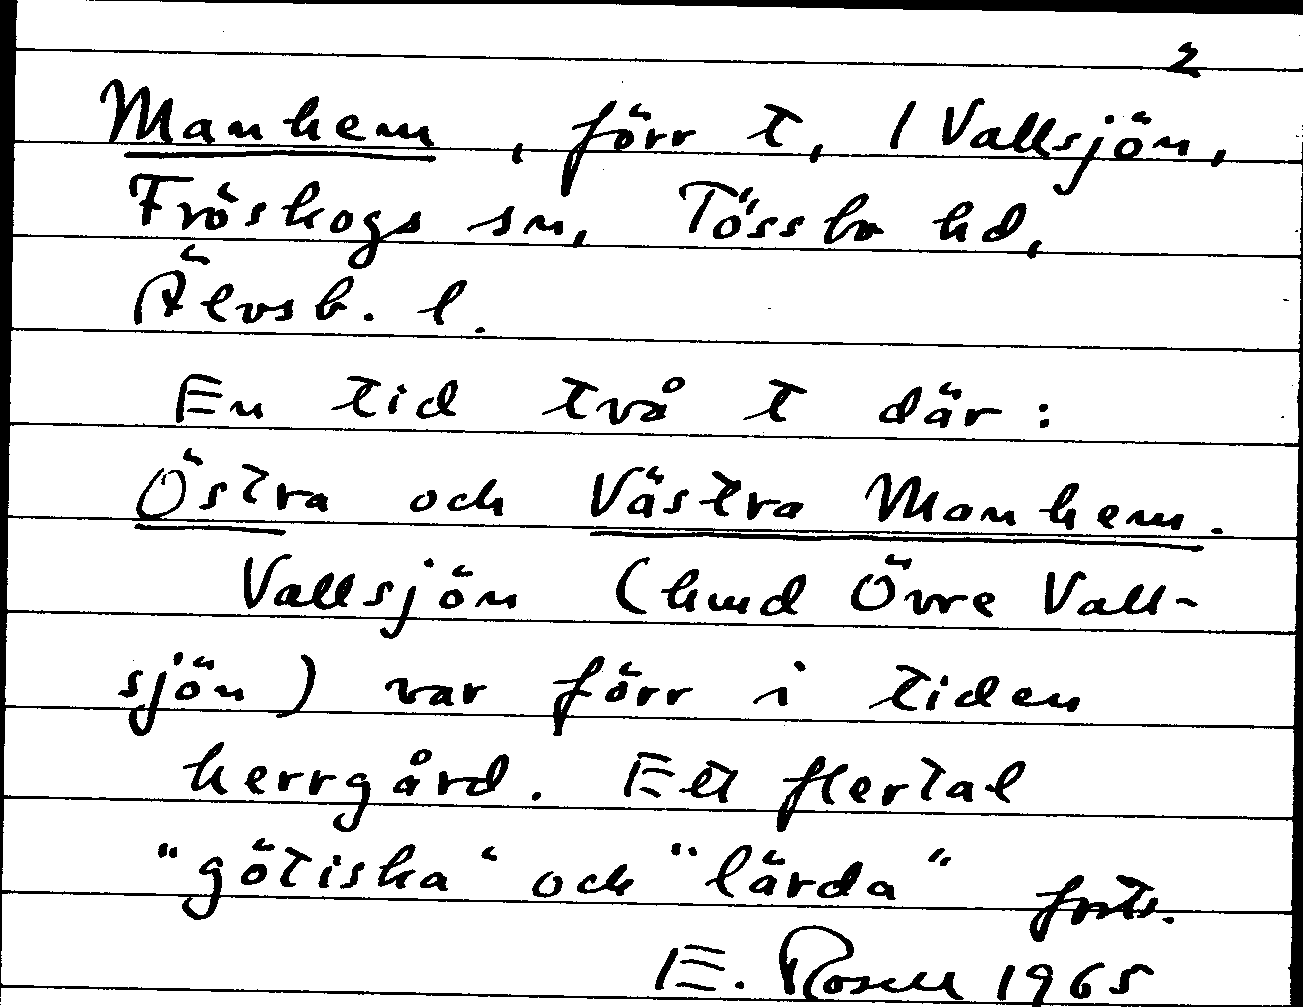 2
Manhem, förr t, / Vallsjön,
Fröskogs sn, Tössbo hd,
Älvsb. l.
En tid två t där:
Östra och Västra Manhem.
Vallsjön (hmd Övre Vall-
sjön) var förr i tiden
herrgård. Ett flertal
"götiska" och "lärda" forts.
E. Rosell 1965